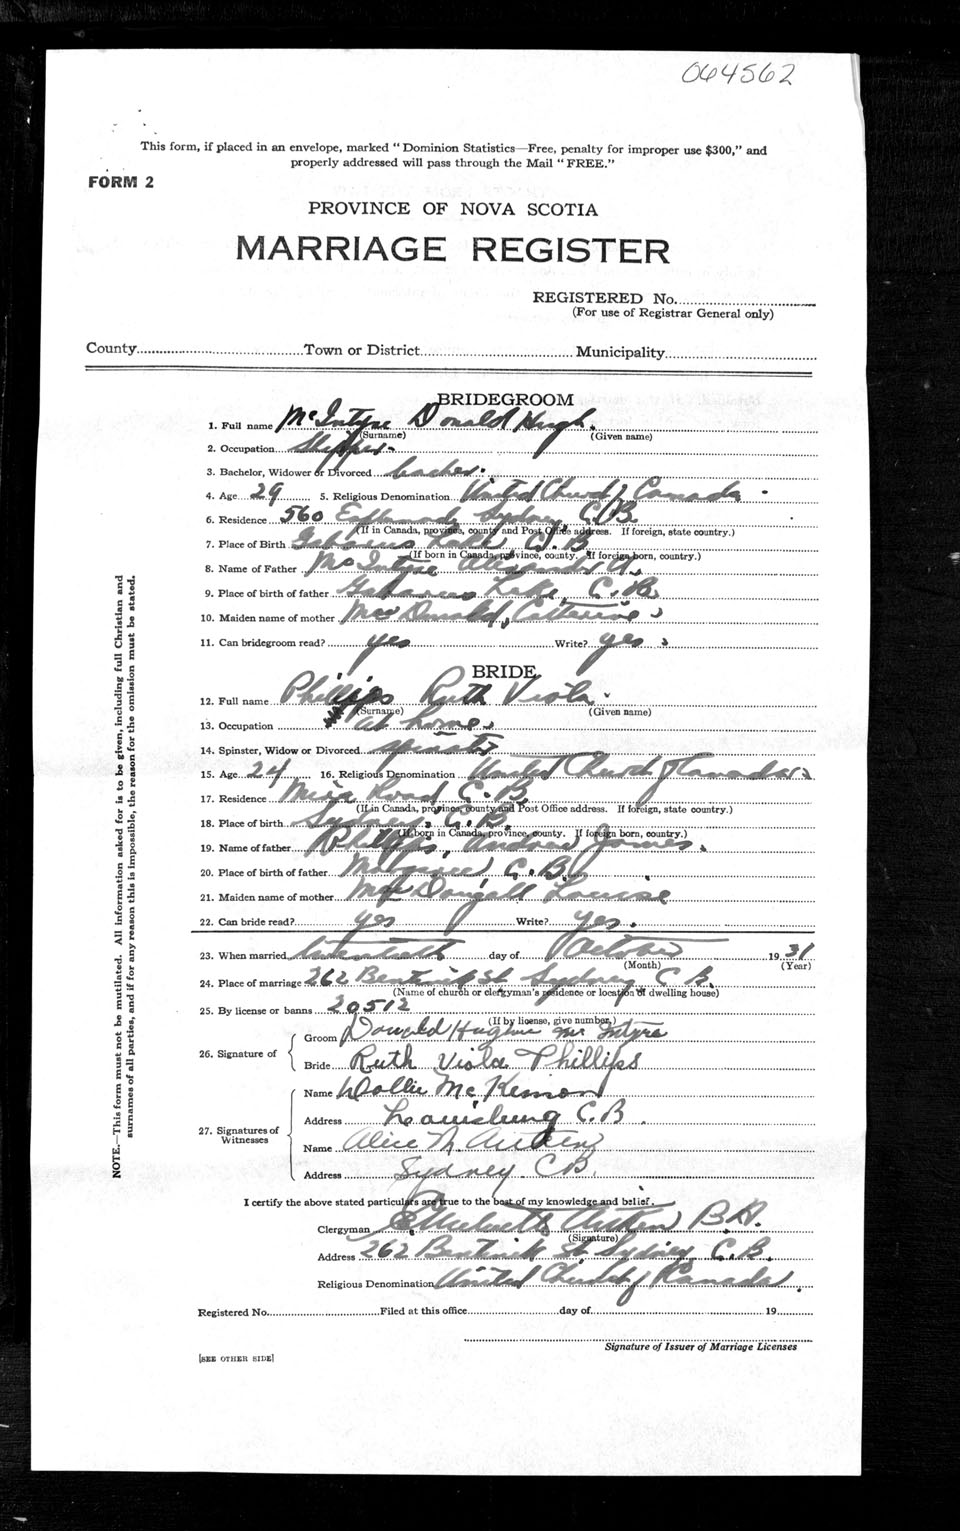 064562
This form, if placed in an envelope, marked "Dominion Statistics—Free, penalty for improper use $300," and
properly addressed will pass through the Mail "FREE."
FORM 2
PROVINCE OF NOVA SCOTIA
MARRIAGE REGISTER
REGISTERED No.
(For use of Registrar General only)
County Town or District Municipality
BRIDEGROOM
1. Full name McIntyre Donald Hugh
(Surname) (Given name)
2. Occupation
3. Bachelor, Widower or Divorced
4. Age 29 5. Religious Denomination United Church of Canada
6. Residence 560 Sydney C.B.
(If in Canada, province, county and Post Office address. If foreign, state country.)
7. Place of Birth Gabarus Lake C.B.
(If born in Canada, province, county. If foreign born, country.)
8. Name of Father McIntyre Alexander A.
9. Place of birth of father Gabarus Lake C.B.
10. Maiden name of mother MacDonald, Catherine
11. Can bridegroom read? yes Write? yes
BRIDE
12. Full name Phillips Ruth Viola
(Surname) (Given name)
13. Occupation at home
14. Spinster, Widow or Divorced spinster
15. Age 24 16. Religious Denomination United Church of Canada
17. Residence Mira Road C.B.
(If in Canada, province, county and Post Office address. If foreign, state country.)
18. Place of birth Sydney C.B.
(If born in Canada, province, county. If foreign born, country.)
19. Name of father Phillips, Andrew James
20. Place of birth of father C.B.
21. Maiden name of mother MacDougall Louise
22. Can bride read? yes Write? yes.
23. When married day of October 1931
(Month) (Year)
24. Place of marriage 262 Bentinck St Sydney C.B.
(Name of church or clergyman's residence or location of dwelling house)
25. By license or banns 20512
(If by license, give number.)
26. Signature of
Groom Donald Hughie McIntyre
Bride Ruth Viola Phillips
27. Signatures of Witnesses
Name Dollie McKinnon
Address Louisburg C.B.
Name Alice M. Austen
Address Sydney C B.
I certify the above stated particulars are true to the best of my knowledge and belief.
Clergyman B.A.
(Signature)
Address 262 Bentinck St. Sydney C.B.
Religious Denomination United Church of Canada
Registered No. Filed at this office day of 19
Signature of Issuer of Marriage Licenses
[SEE OTHER SIDE]
NOTE.—This form must not be mutilated. All information asked for is to be given, including full Christian and
surnames of all parties, and if for any reason this is impossible, the reason for the omission must be stated.